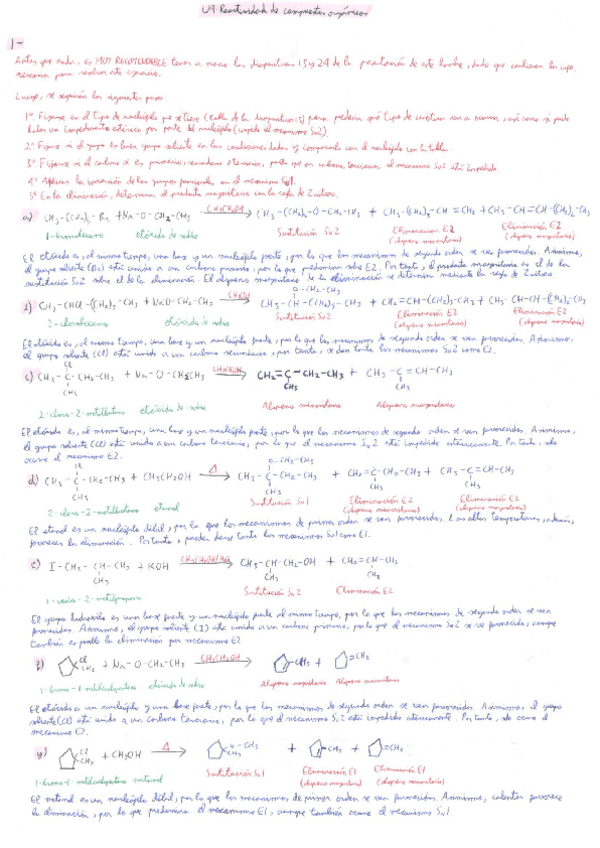 U9 Reactividad de compuestos orgánicos
1-
Antes que nada, es MUY RECOMENDABLE tener a mano las diapositivas 15 y 24 de la presentación de este bloque, dado que contienen la info.
necesaria para resolver este ejercicio.
Luego, se seguirán los siguientes pasos
1º Fijarse en el tipo de nucleófilo que se tiene (tabla de la diapositiva 15) para predecir qué tipo de reacción va a ocurrir, así como si puede
haber un impedimento estérico por parte del nucleófilo (impide el mecanismo SN2).
2º Fijarse si el grupo es buen grupo saliente en las condiciones dadas y compararlo con el nucleófilo con la tabla.
3º Fijarse si el carbono α es primario, secundario o terciario, puesto que en carbonos terciarios el mecanismo SN2 está impedido.
4º Aplicar la inversión de los grupos funcionales en el mecanismo
5º En la eliminación, determinar el producto mayoritario con la regla de Zaitsev.
a) CH3-(CH2)-Br + Na-O-CH2-CH3 CH3CH2OH CH3-(CH2)-O-CH2-CH3 + CH3-(CH2)-CH=CH2 + CH3-CH=CH-(CH2)-CH3
etóxido de sodio Sustitución SN2 Eliminación E2 Eliminación E2
(alqueno mayoritario) (alqueno minoritario)
El etóxido es, al mismo tiempo, una base y un nucleófilo fuerte, por lo que los mecanismos de segundo orden se ven favorecidos. Asimismo,
el grupo saliente (Br) está unido a un carbono primario, por lo que predomina sobre E2. Por tanto, el producto mayoritario es el de la
sustitución SN2 sobre el de la eliminación. El alqueno mayoritario de la eliminación se determina mediante la regla de Zaitsev
O-CH2-CH3
b) CH3-CHCl-(CH2)3-CH3 + NaO-CH2-CH3 CH3-CH-(CH2)3-CH3 + CH2=CH-(CH2)3-CH3 + CH3-CH=CH-(CH2)2-CH3
2-clorohexano etóxido de sodio Sustitución SN2 Eliminación E2 Eliminación E2
(alqueno minoritario) (alqueno mayoritario)
El etóxido es, al mismo tiempo, una base y un nucleófilo fuerte, por lo que los mecanismos de segundo orden se ven favorecidos. Asimismo,
el grupo saliente (Cl) está unido a un carbono secundario, por tanto, se dan tanto los mecanismos SN2 como E2.
Cl
c) CH3-C-CH2-CH3 + Na-O-CH2CH3 CH3CH2OH CH2=C-CH2-CH3 + CH3-C=CH-CH3
CH3 CH3 CH3
2-cloro-2-metilbutano etóxido de sodio Alqueno minoritario Alqueno mayoritario
El etóxido es, al mismo tiempo, una base y un nucleófilo fuerte, por lo que los mecanismos de segundo orden se ven favorecidos. Asimismo,
el grupo saliente (Cl) está unido a un carbono terciario, por lo que el mecanismo SN2 está impedido estéricamente. Por tanto, solo
ocurre el mecanismo E2.
Cl O-CH2-CH3
d) CH3-C-CH2-CH3 + CH3CH2OH Δ CH3-C-CH2-CH3 + CH2=C-CH2-CH3 + CH3-C=CH-CH3
CH3 CH3 CH3 CH3
2-cloro-2-metilbutano etanol Sustitución SN1 Eliminación E2 Eliminación E2
(alqueno minoritario) (alqueno mayoritario)
El etanol es un nucleófilo débil, por lo que los mecanismos de primer orden se ven favorecidos. Las altas temperaturas, además,
favorecen la eliminación. Por tanto, pueden darse tanto los mecanismos SN1 como E1.
e) I-CH2-CH-CH3 + KOH CH3-CH-CH2-OH + CH2=CH-CH3
CH3 CH3
1-yodo-2-metilpropano Sustitución SN2 Eliminación E2
El grupo hidróxido es una base fuerte y un nucleófilo fuerte al mismo tiempo, por lo que los mecanismos de segundo orden se ven
favorecidos. Asimismo, el grupo saliente (I) está unido a un carbono primario, por lo que el mecanismo SN2 se ve favorecido, aunque
también es posible la eliminación por mecanismo E2
f) Cl CH3 + Na-O-CH2-CH3 CH3CH2OH CH3 + =CH2
etóxido de sodio Alqueno mayoritario Alqueno minoritario
El etóxido es un nucleófilo y una base fuerte, por lo que los mecanismos de segundo orden se ven favorecidos. Asimismo el grupo
saliente (Cl) está unido a un carbono terciario, por lo que el mecanismo SN2 está impedido estéricamente. Por tanto, solo ocurre el
mecanismo E2.
g) Cl CH3 + CH3OH Δ O-CH3 CH3 + CH3 + =CH2
metanol Sustitución SN1 Eliminación E1 Eliminación E1
(alqueno mayoritario) (alqueno minoritario)
El metanol es un nucleófilo débil, por lo que los mecanismos de primer orden se ven favorecidos. Asimismo, calentar favorece
la eliminación, por lo que predomina el mecanismo E1, aunque también ocurre el mecanismo SN1.